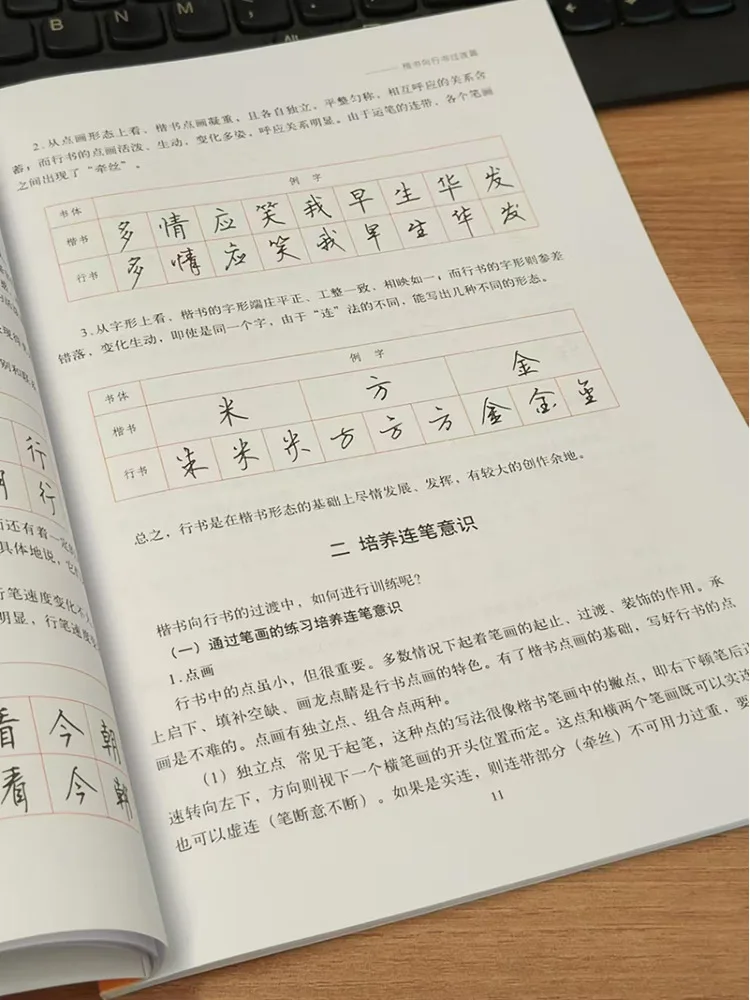 楷书向行书过渡篇
2.从点画形态上看，楷书点画凝重，且各自独立，平整匀称，相互呼应的关系含
蓄；而行书的点画活泼、生动，变化多姿，呼应关系明显。由于运笔的连带，各个笔画
之间出现了“牵丝”。
书体 例字
楷书 多 情 应 笑 我 早 生 华 发
行书 多 情 应 笑 我 早 生 华 发
3.从字形上看，楷书的字形端庄平正、工整一致、相映如一；而行书的字形则参差
错落，变化生动，即使是同一个字，由于“连”法的不同，能写出几种不同的形态。
书体 例字
楷书 米 方 金
行书 米 米 米 方 方 方 金 金 金
总之，行书是在楷书形态的基础上尽情发展、发挥，有较大的创作余地。
二 培养连笔意识
楷书向行书的过渡中，如何进行训练呢？
（一）通过笔画的练习培养连笔意识
1.点画
行书中的点虽小，但很重要。多数情况下起着笔画的起止、过渡、装饰的作用。承
上启下、填补空缺、画龙点睛是行书点画的特色。有了楷书点画的基础，写好行书的点
画是不难的。点画有独立点、组合点两种。
（1）独立点 常见于起笔，这种点的写法很像楷书笔画中的撇点，即右下顿笔后迅
速转向左下，方向则视下一个横笔画的开头位置而定。这点和横两个笔画既可以实连
也可以虚连（笔断意不断）。如果是实连，则连带部分（牵丝）不可用力过重，要
11
行
行
而还有着一定的
具体地说，它
行笔速度变化不
明显，行笔速度
看 今 朝
看 今 朝
B N M
Alt